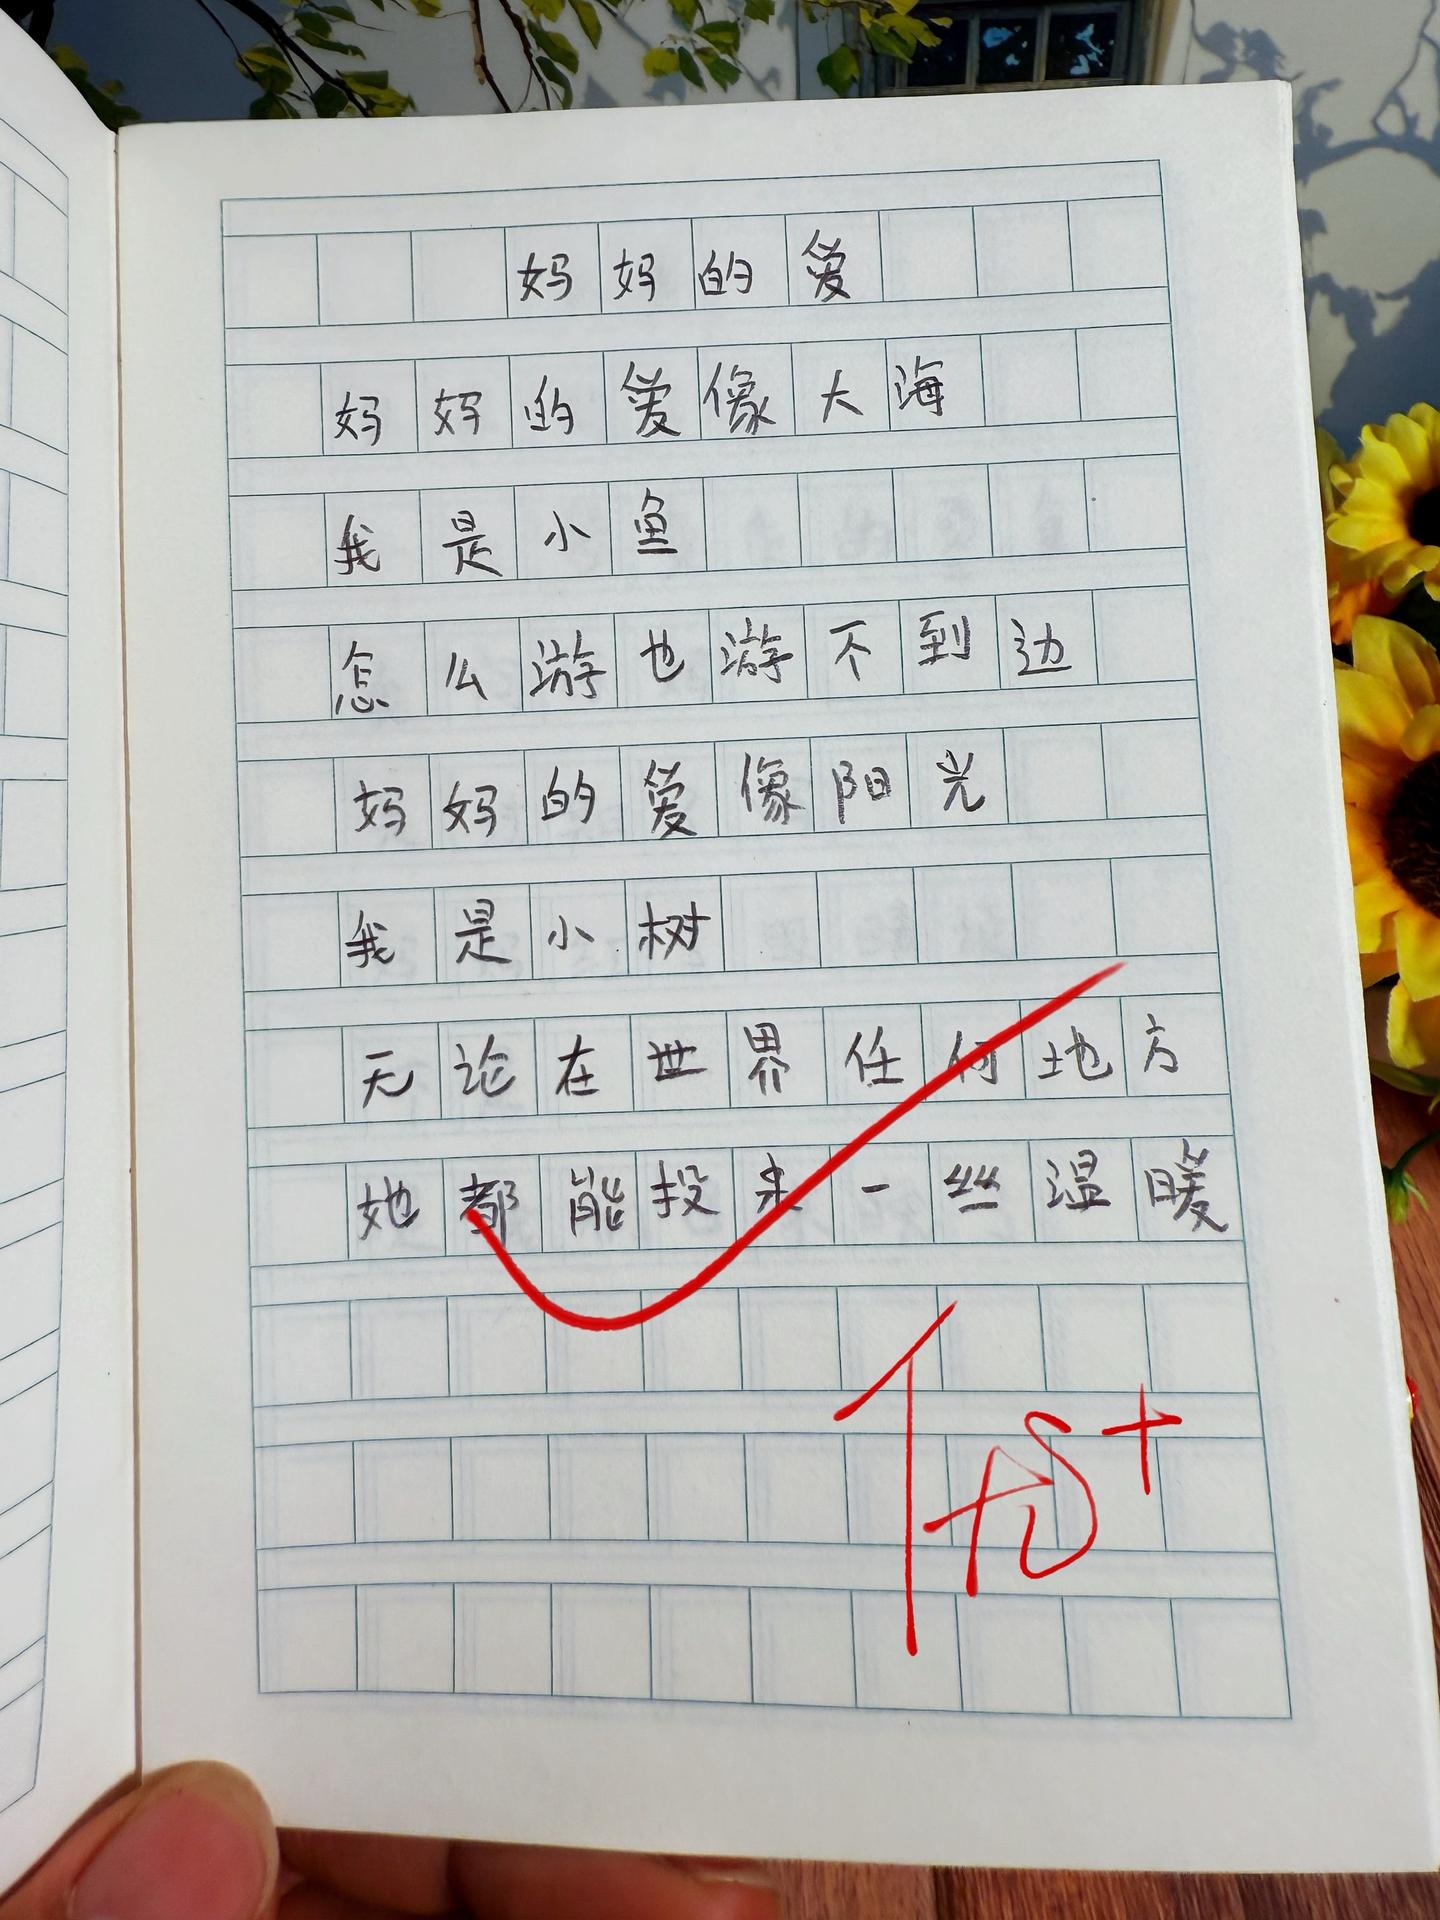 妈妈的爱
妈妈的爱像大海
我是小鱼
怎么游也游不到边
妈妈的爱像阳光
我是小树
无论在世界任何地方
她都能投来一丝温暖
优+